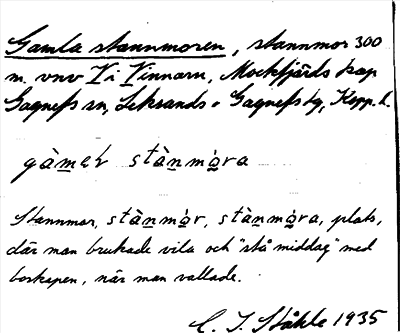 Gamla stannmoren, stannmor 300
m. vnv V i Vinnarn, Mockfjärds kap
Gagnefs sn, Leksands o Gagnefs tg, Kopp. l.
gàmer stànmòra
Stannmor, stànmòr, stànmòra, plats,
där man brukade vila och "stå middag" med
boskapen, när man vallade.
C. I. Ståhle 1935